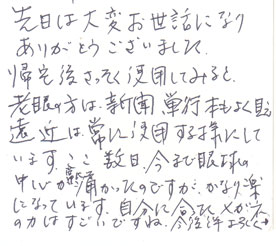 先日は大変お世話になり
ありがとうございました。
帰宅後さっそく使用してみると、
老眼の方は、新聞、単行本もよく
遠近は、常に使用する様にして
います。ここ数日、今まで眼球の
中心が痛かったのですが、かなり楽
になっています。自分に合たメガネ
の力はすごいですね。今後共よろしく